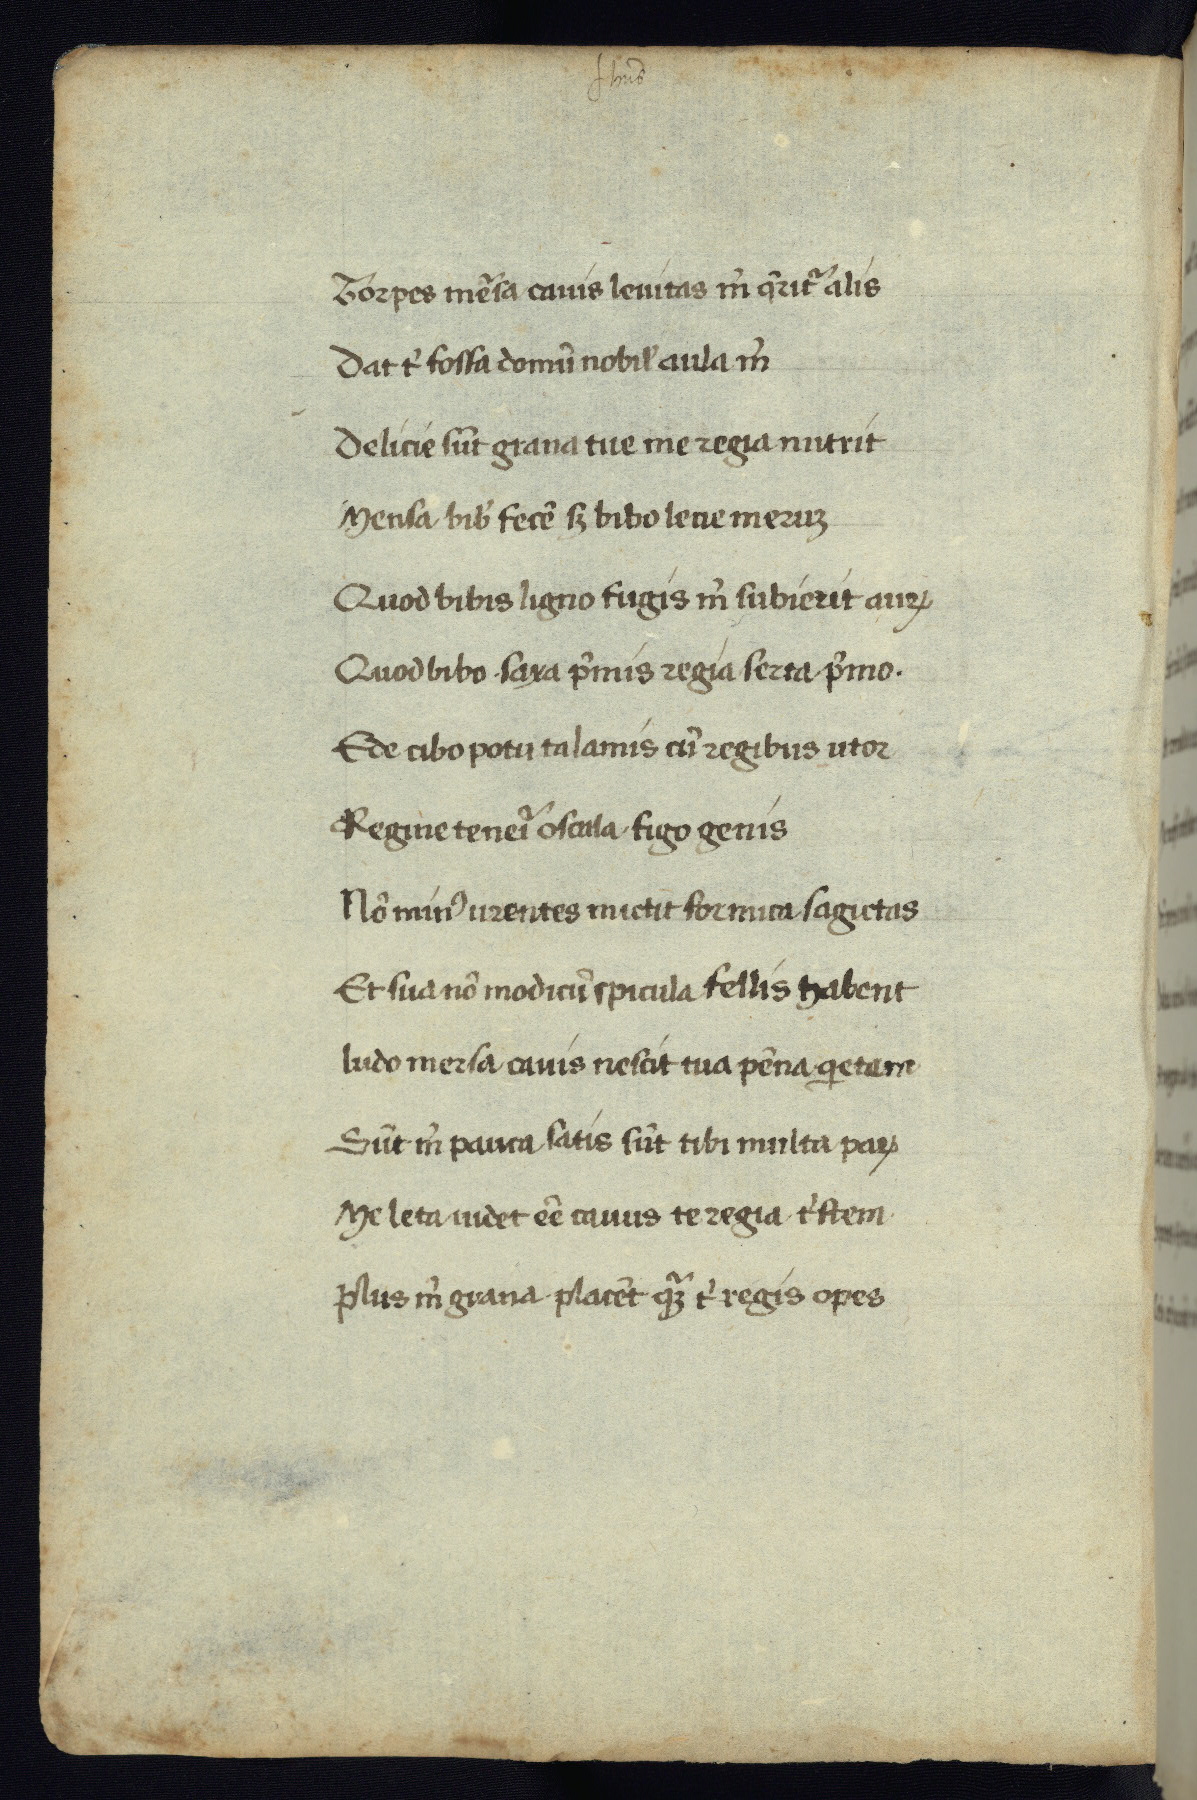 Jhus
Torpes me͂rsa cauis leuitas m̃ q̃rit᷑ alis
Dat t̾ fossa domũ nobil̾ aula m̃
Delicie sũt grana tue me regia nutrit
Mensa bib̾ fecẽ sꝫ bibo lecie meruꝫ
Quod bibis ligno fugis m̃ subierit aurꝝ
Quod bibo saxa p̾mis regia serta p̾mo.
Ede cibo potu talamis cũ regibus utor
Regine tenei᷑ oscula figo genis
Nõ minꝰ urentes mictit formica sagictas
Et sua nõ modicũ spicula fellis habent
ludo mersa cauis nescit tua pẽna q̱etem
Sũt m̃ pauca satis sũt tibi multa paꝝ
Me leta uidet eẽ cauus te regia t̾stem
Plus m̃ grana placẽt qꝫᷓ t̾ regis opes